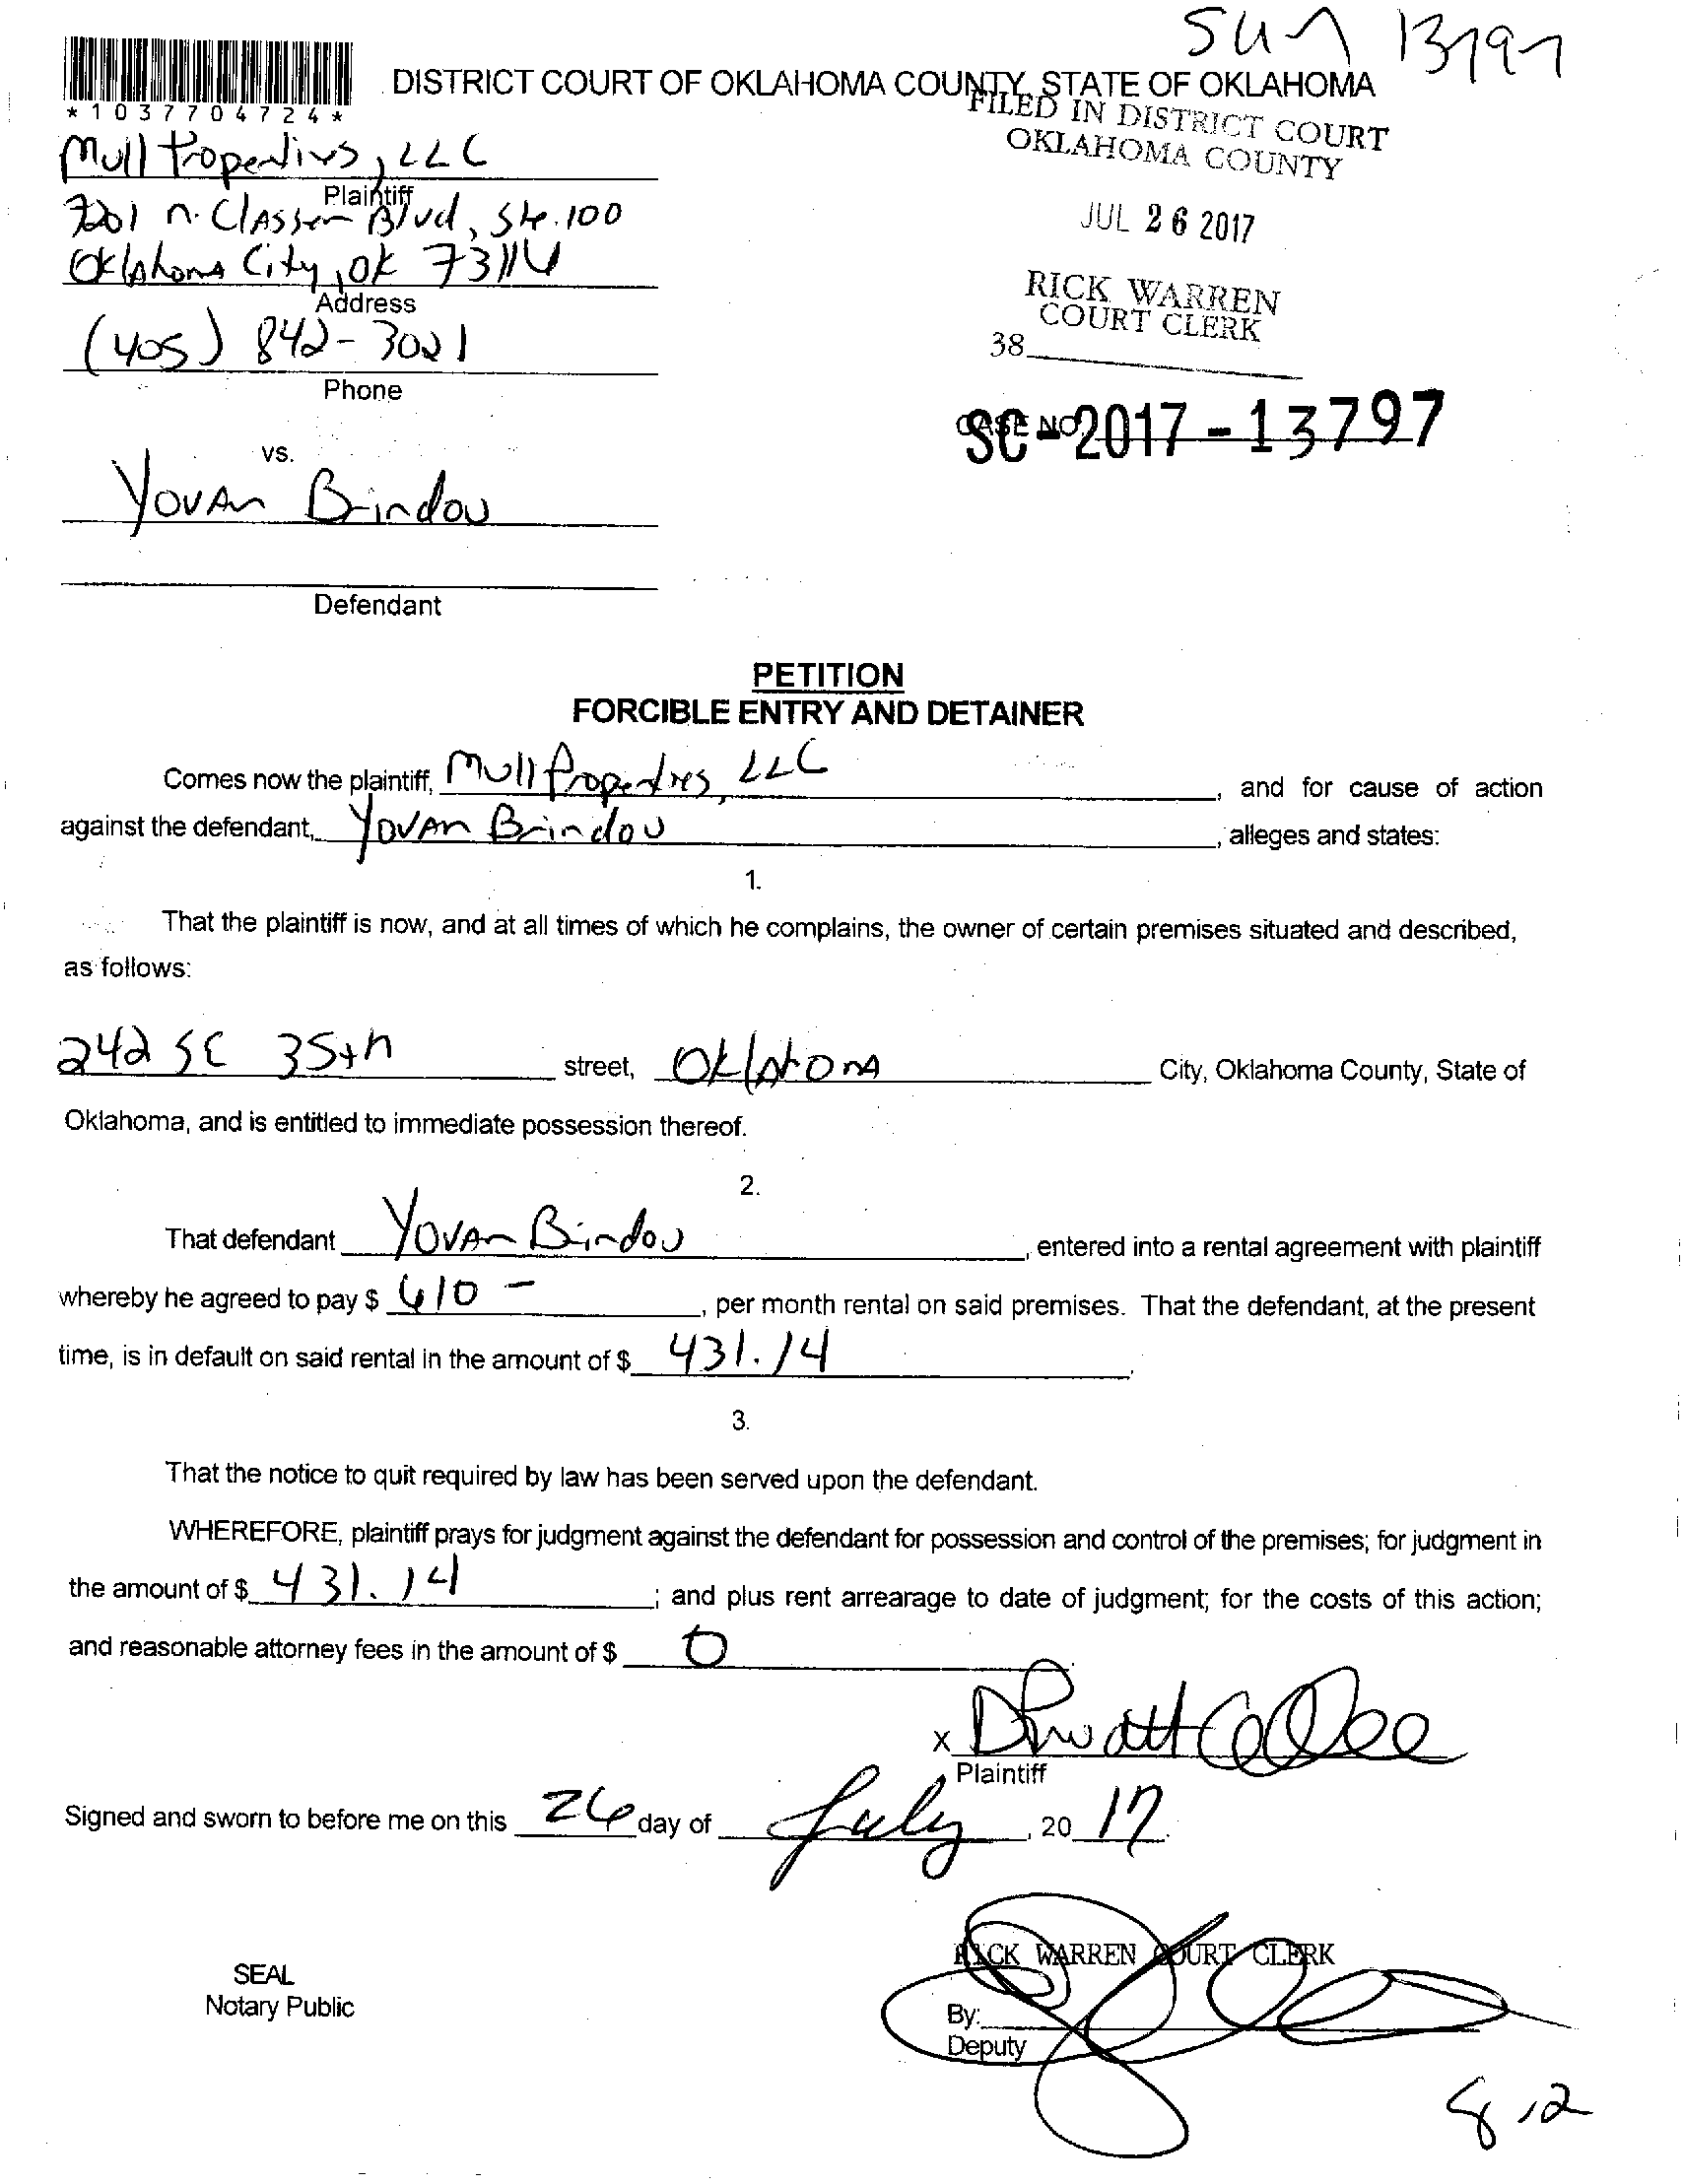 Sun 13797
DISTRICT COURT OF OKLAHOMA COUNTY, STATE OF OKLAHOMA
*1037704724*
FILED IN DISTRICT COURT
OKLAHOMA COUNTY
JUL 26 2017
RICK WARREN
COURT CLERK
38
Mull Properties, LLC
Plaintiff
7201 N. Classen Blvd, Ste. 100
Oklahoma City, OK 73116
Address
(405) 842-3021
Phone
CASE NO.
SC-2017-13797
vs.
Yovan Brindou
Defendant
PETITION
FORCIBLE ENTRY AND DETAINER
Comes now the plaintiff, Mull Properties, LLC, and for cause of action
against the defendant, Yovan Brindou, alleges and states:
1.
That the plaintiff is now, and at all times of which he complains, the owner of certain premises situated and described,
as follows:
242 SE 35th street, Oklahoma City, Oklahoma County, State of
Oklahoma, and is entitled to immediate possession thereof.
2.
That defendant Yovan Brindou, entered into a rental agreement with plaintiff
whereby he agreed to pay $ 610 -, per month rental on said premises. That the defendant, at the present
time, is in default on said rental in the amount of $ 431.14.
3.
That the notice to quit required by law has been served upon the defendant.
WHEREFORE, plaintiff prays for judgment against the defendant for possession and control of the premises; for judgment in
the amount of $ 431.14; and plus rent arrearage to date of judgment; for the costs of this action;
and reasonable attorney fees in the amount of $ 0
X
Plaintiff
Signed and sworn to before me on this 26 day of July, 20 17.
RICK WARREN COURT CLERK
SEAL
Notary Public
By:
Deputy
8.12